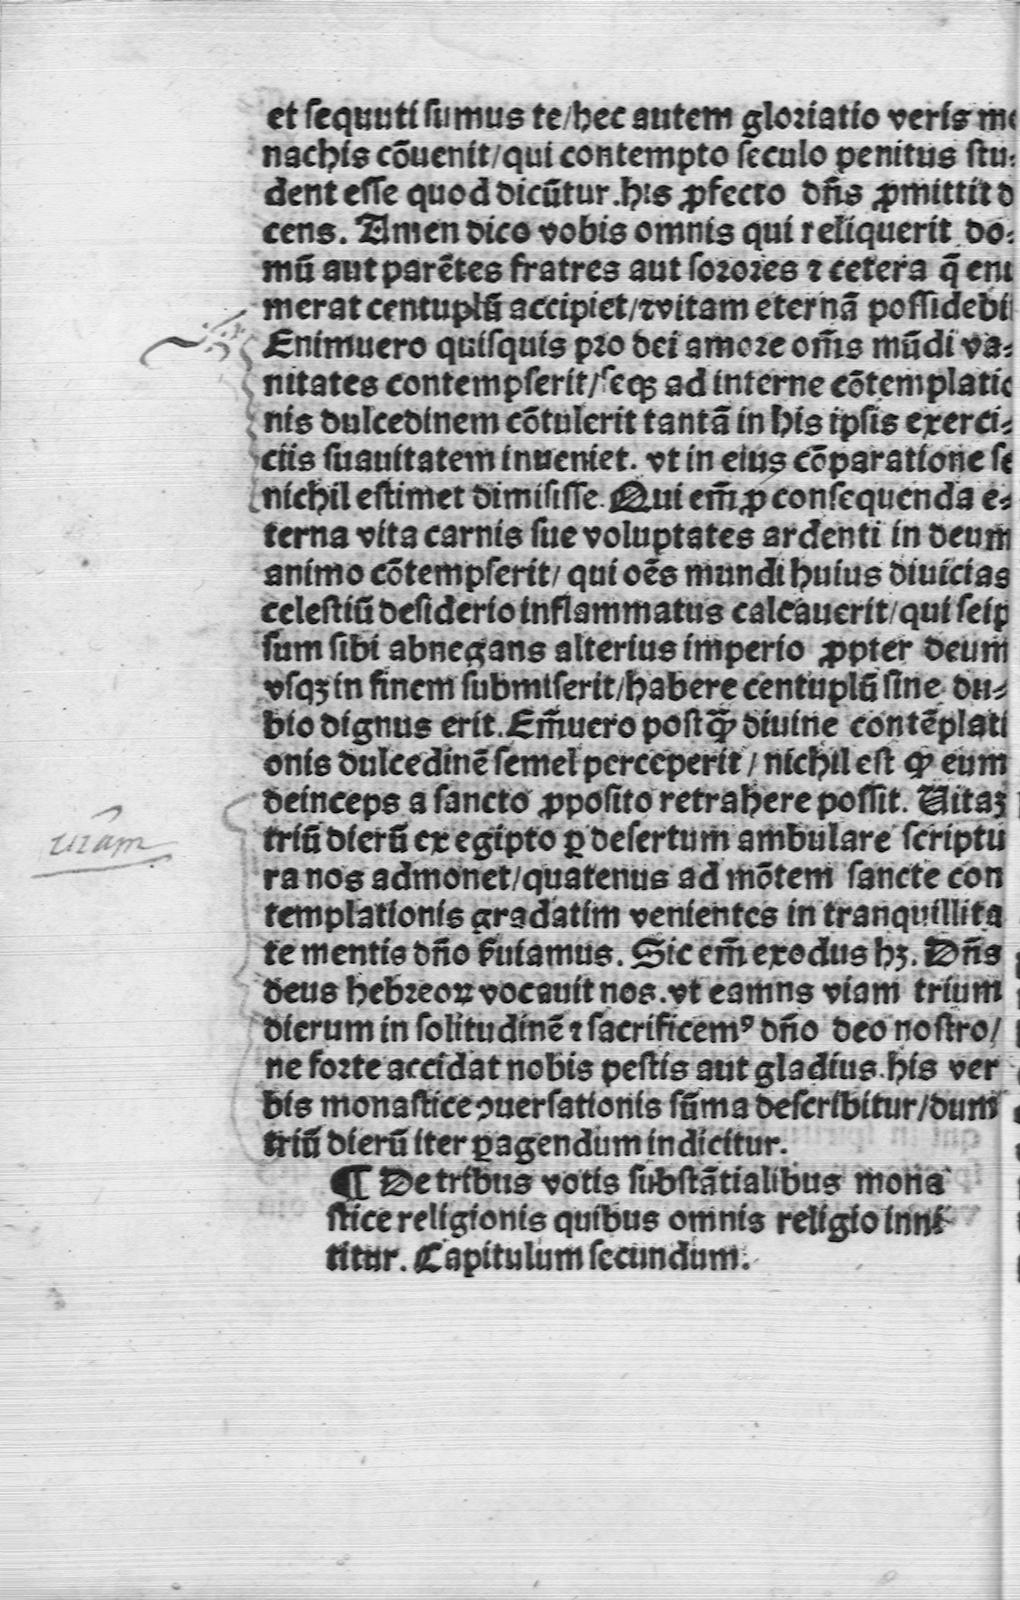 et sequuti sumus te/hec autem gloriatio veris mo
nachis cōuenit/qui contempto seculo penitus stu⸗
dent esse quod dicūtur.his ꝓfecto dñs ꝓmittit d
cens. Amen dico vobis omnis qui reliquerit do⸗
mū aut parētes fratres aut sorores ⁊ cetera q̄ enu
merat centuplū accipiet/⁊vitam eternā possidebi
Enimuero quisquis pro dei amore om̄s mūdi va⸗
nitates contempserit/seqꝫ ad interne cōtemplatio
nis dulcedinem cōtulerit tantā in his ipsis exerci⸗
ciis suauitatem inueniet. vt in eius cōparatione se
nichil estimet dimisisse. Qui em̄ ꝓ consequenda e⸗
terna vita carnis sue voluptates ardenti in deum
animo cōtempserit/ qui oēs mundi huius diuicias
celestiū desiderio inflammatus calcauerit/qui seip
sum sibi abnegans alterius imperio ꝓpter deum
vsqꝫ in finem submiserit/habere centuplū sine du⸗
bio dignus erit. Em̄uero postꝙ̄ diuine contēplati
onis dulcedinē semel perceperit/ nichil est ꝙ eum
deinceps a sancto ꝓposito retrahere possit. Uitaꝫ
triū dierū ex egipto ꝑ desertum ambulare scriptu
ra nos admonet/quatenus ad mōtem sancte con
templationis gradatim venientes in tranquillita
te mentis dño ẜuiamus. Sic em̄ exodus hꝫ. Dñs
deus hebreoꝝ vocauit nos.vt eamns viam trium
dierum in solitudinē ⁊ sacrificemꝰ dño deo nostro/
ne forte accidat nobis pestis aut gladius.his ver
bis monastice ꝯuersationis sūma describitur/dum
triū dierū iter ꝑagendum indicitur.
¶ De tribus votis substātialibus mona
stice religionis quibus omnis religio inni
titur. Capitulum secundum.
viam